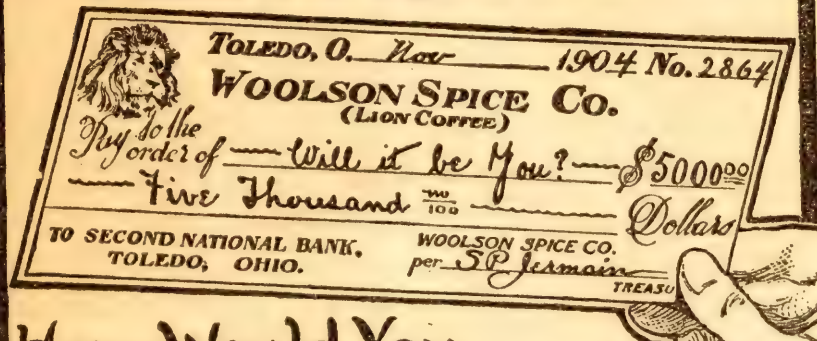 TOLEDO, O. Nov 1904 No. 2864
WOOLSON SPICE CO.
(LION COFFEE)
Pay to the
order of Will it be You? $5000 00
Five Thousand no/100 Dollars
TO SECOND NATIONAL BANK,
TOLEDO, OHIO.
WOOLSON SPICE CO.
per S.P. Jermain
TREASU
How Would You